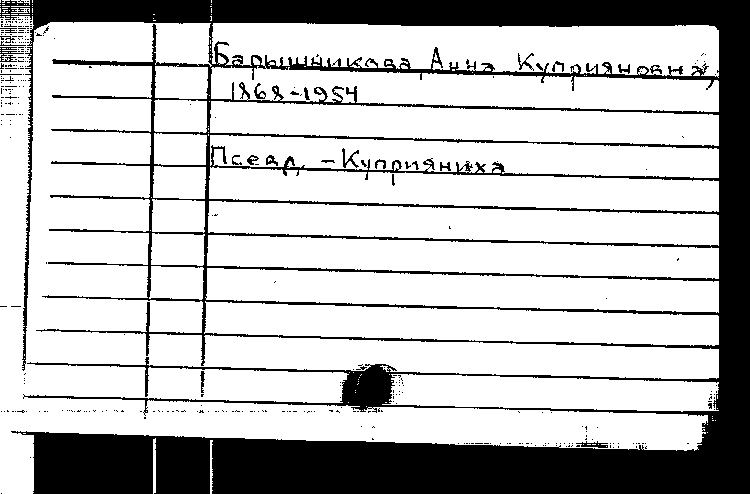 Барышникова, Анна Куприяновна,
1868-1954
Псевд. - Куприяниха